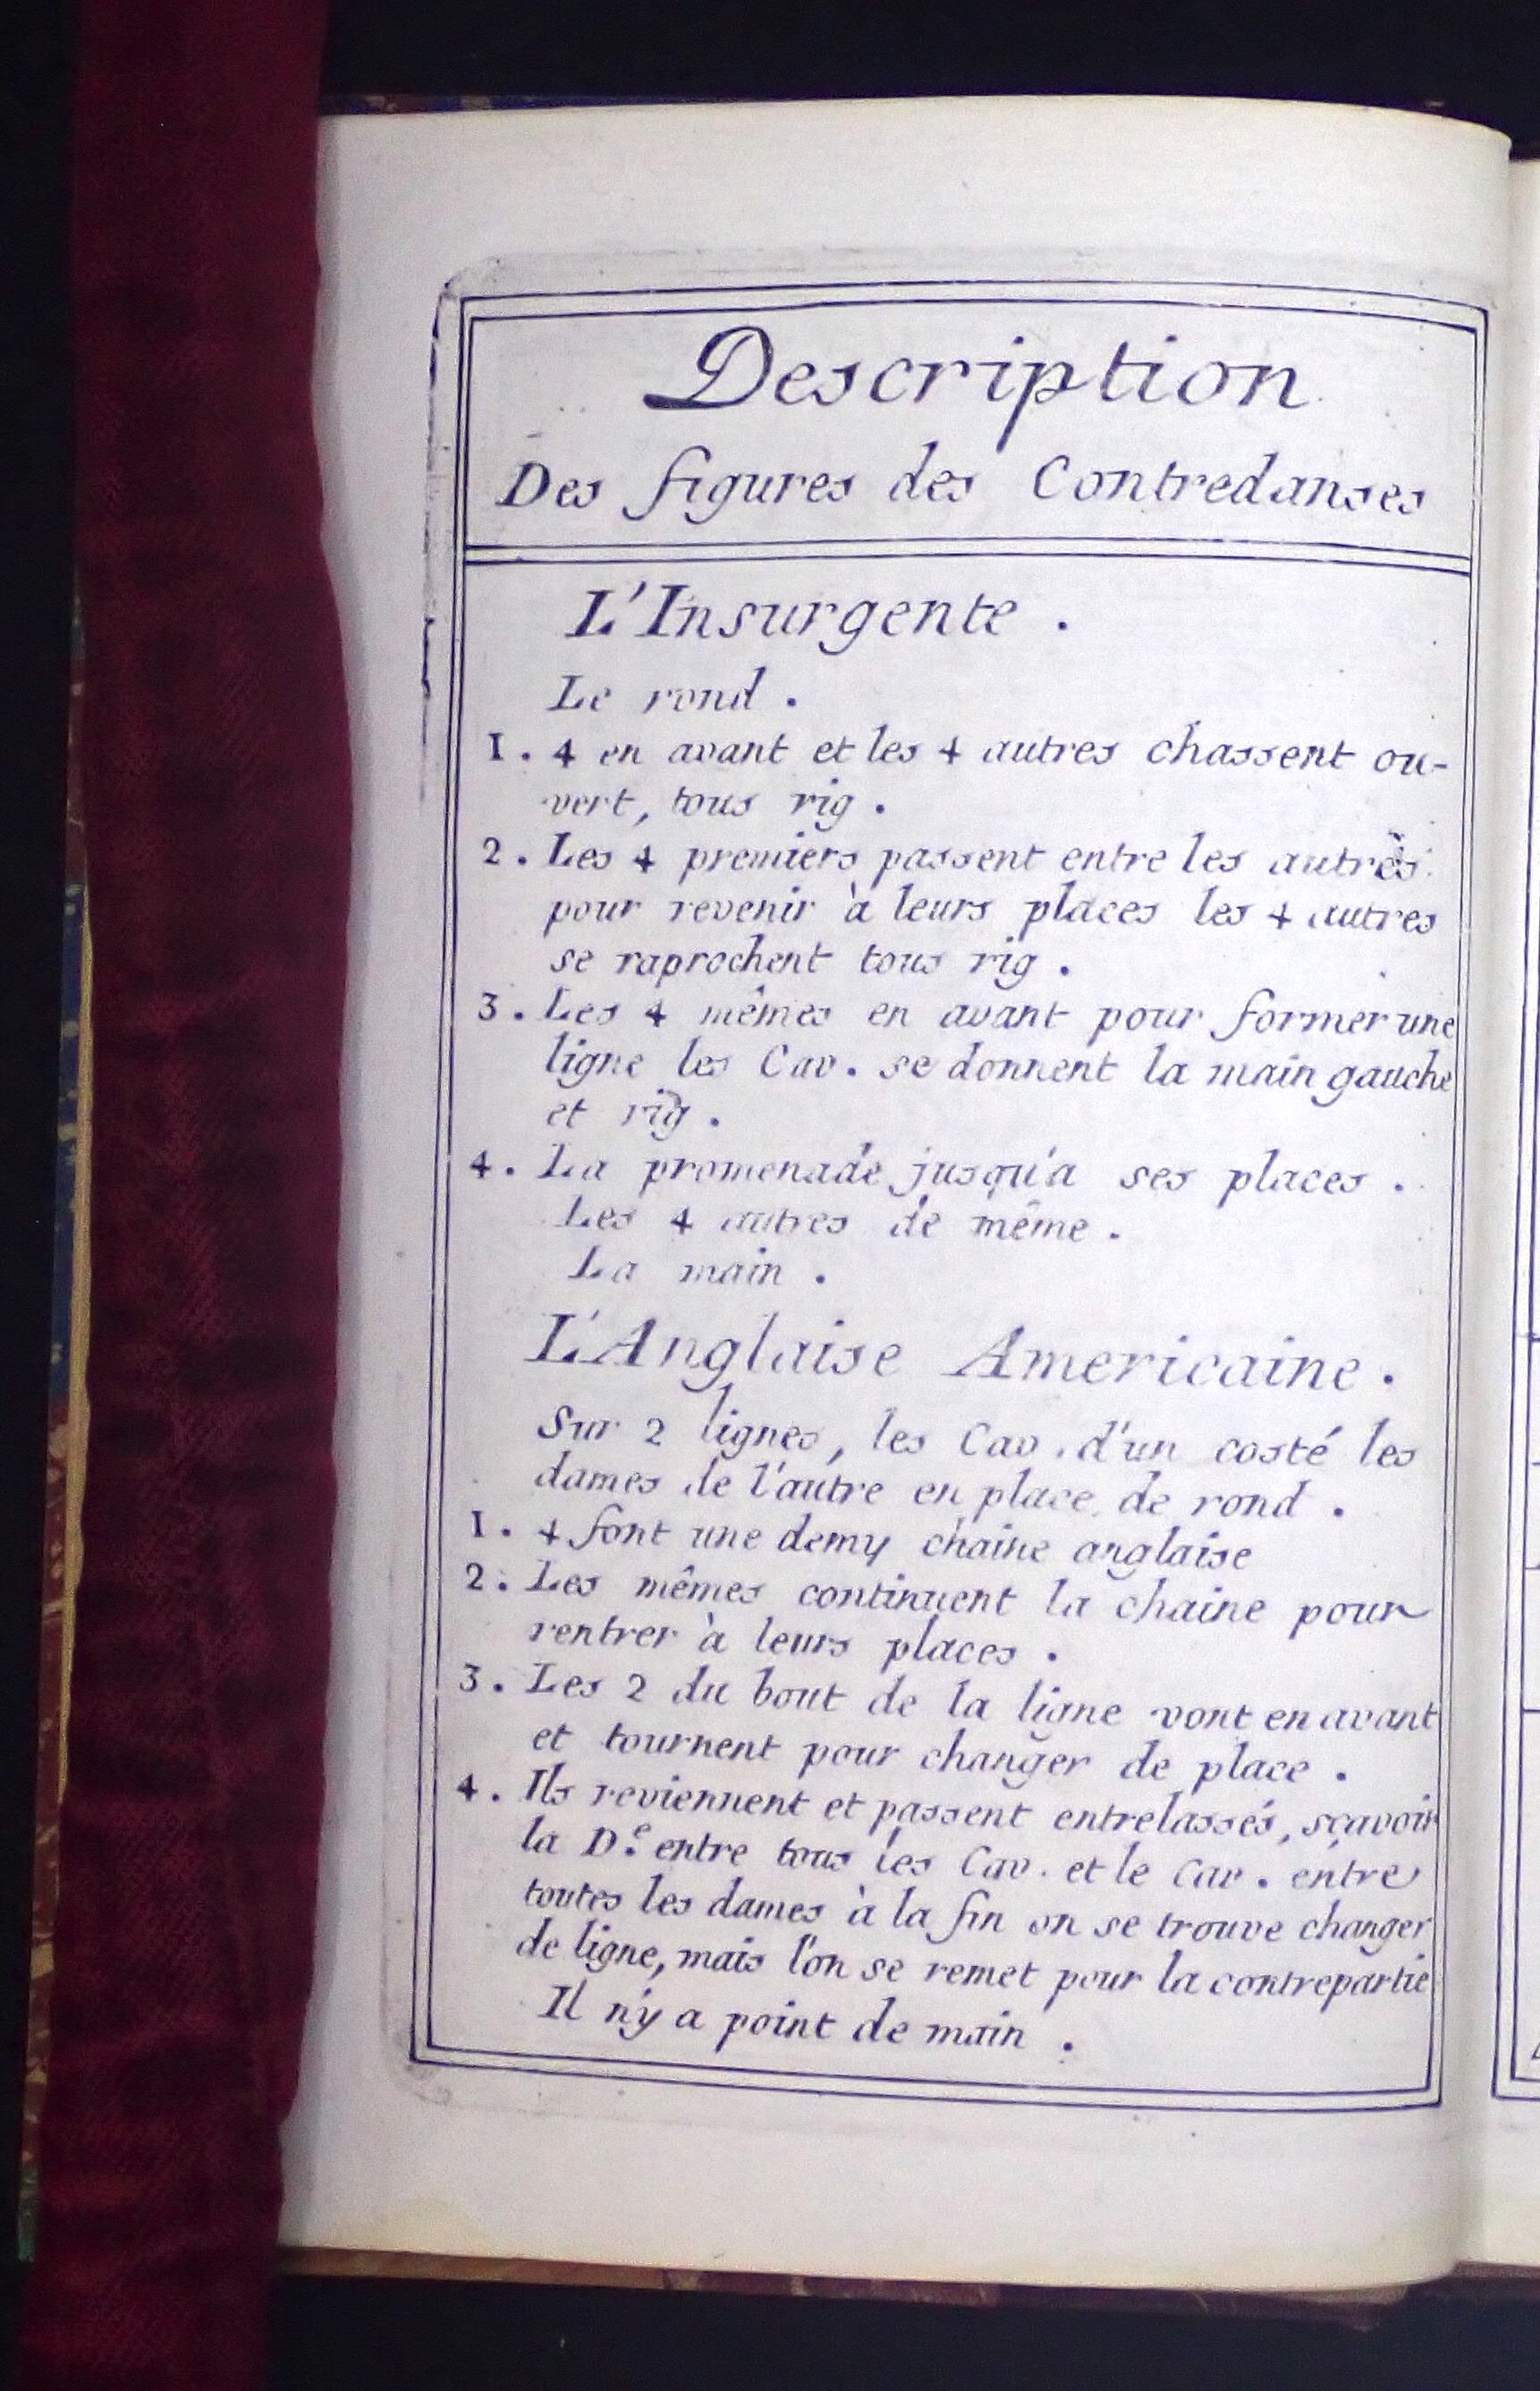 Description
Des figures des Contredanses
L'Insurgente .
Le rond .
1 . 4 en avant et les 4 autres chassent ou-
vert, tous rig .
2 . Les 4 premiers passent entre les autres
pour revenir à leurs places les 4 autres
se raprochent tous rig .
3 . Les 4 mêmes en avant pour former une
ligne les Cav . se donnent la main gauche
et rig .
4 . La promenade jusqu'a ses places .
Les 4 autres de même .
La main .
L'Anglaise Americaine .
Sur 2 lignes, les Cav . d'un costé les
dames de l'autre en place de rond .
1 . 4 font une demy chaine anglaise
2 . Les mêmes continuent la chaine pour
rentrer à leurs places .
3 . Les 2 du bout de la ligne vont en avant
et tournent pour changer de place .
4 . Ils reviennent et passent entrelassés, sçavoir
la D.e entre tous les Cav . et le Cav . entre
toutes les dames à la fin on se trouve changer
de ligne, mais l'on se remet pour la contrepartie
Il n'y a point de main .